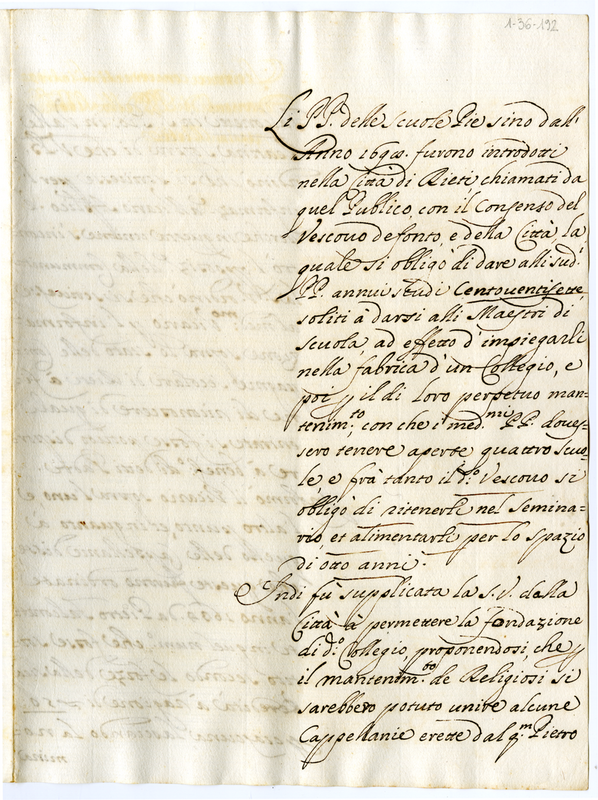 1-36-192
Li PP. delle Scuole Pie sino dall'
Anno furono introdotti
nella Città di Rieti chiamati da
quel Publico, con il Consenso del
Vescovo defonto, e della Città, la
quale si obligò di dare alli sud.
PP. annui scudi Centoventisette,
soliti à darsi alli Maestri di
scuola, ad effetto d'impiegarli
nella fabrica d'un Collegio, e
poi p il di loro perpetuo man=
tenim.to, con che i med.mi PP. doves=
sero tenere aperte quattro scuo=
le, e frà tanto il d.o Vescovo si
obligò di ritenerli nel semina=
rio, et alimentarli per lo spazio
di otto anni.
Indi fù supplicata la S. V. dalla
Città à permettere la fondazione
di d.o Collegio, proponendosi, che p
il mantenim.to de Religiosi si
sarebbero potuto unire alcune
Cappellanie erette dal q.m Pietro